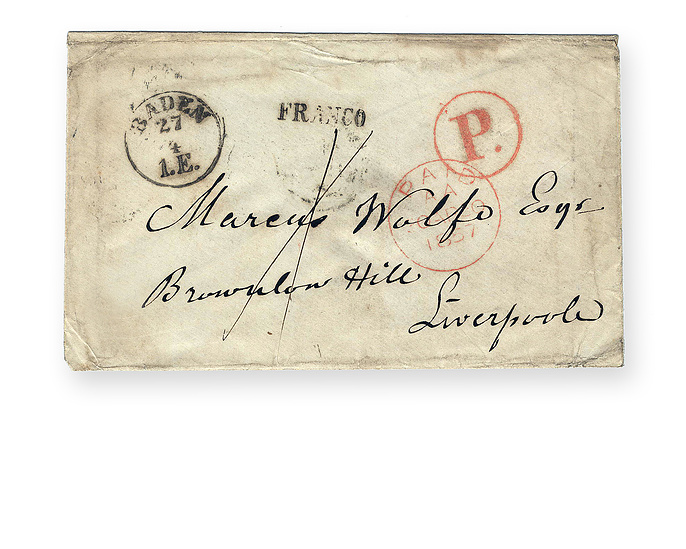 BADEN
27
4
1.E.
FRANCO
P.
PAID
1857
Marcus Wolfe Esqr
Brownlow Hill
Liverpoole